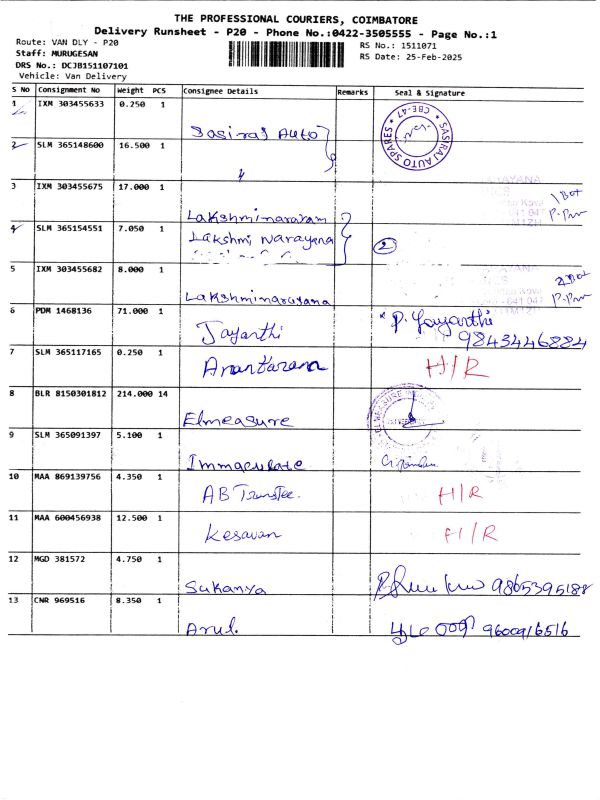 THE PROFESSIONAL COURIERS, COIMBATORE
Delivery Runsheet - P20 - Phone No.:0422-3505555 - Page No.:1
Route: VAN DLY - P20
Staff: MURUGESAN
DRS No.: DCJB151107101
Vehicle: Van Delivery
RS No.: 1511071
RS Date: 25-Feb-2025
S No Consignment No Weight PCS Consignee Details Remarks Seal & Signature
1 IXM 303455633 0.250 1 Sasiraj Auto
SASIRAJ AUTO SPARES * CBE-47 *
2 SLM 365148600 16.500 1
3 IXM 303455675 17.000 1 Lakshminarayana 1 Box
4 SLM 365154551 7.050 1 Lakshmi Narayana 2
5 IXM 303455682 8.000 1 Lakshminarayana 2 Box
6 PDM 1468136 71.000 1 Jayanthi P. Jayanthi
9843446884
7 SLM 365117165 0.250 1 H/R
8 BLR 8150301812 214.000 14 Elmeasure
9 SLM 365091397 5.100 1 Immaculate
10 MAA 869139756 4.350 1 AB Transtec. H/R
11 MAA 600456938 12.500 1 Kesavan H/R
12 MGD 381572 4.750 1 Sukanya 9865395188
13 CNR 969516 8.350 1 Arul. 9600916516